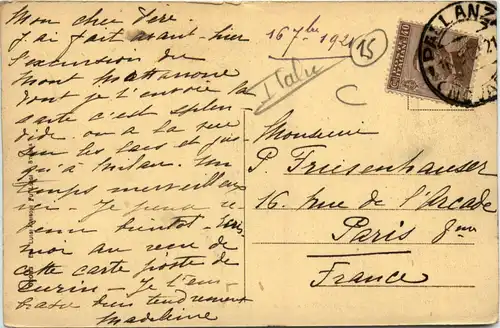 Mon cher Père.
J'ai fait avant-hier
l'excursion du
Mont Mattarone
dont je t'envoie la
carte c'est splen
dide. on a la vue
sur les lacs et jus
qu'à Milan. Un
temps merveilleux
Je pense re
bientôt - Écris
moi au reçu de
cette carte poste de
Turin - Je t'em
brasse bien tendrement
Madeleine
16 7bre 1921
15
Italie
C
PALLANZA
21
Monsieur
P. Friesenhauser
16. rue de l'Arcade
Paris 8me
France